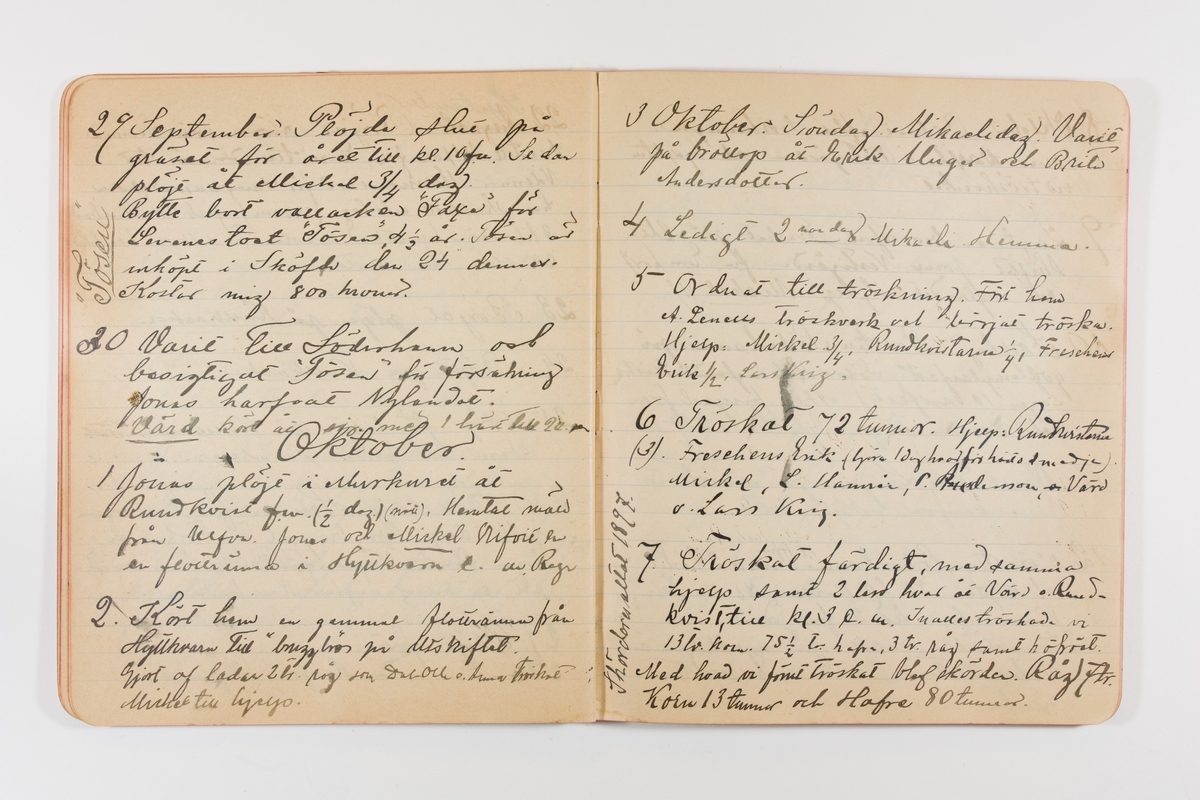 29 September. Plöjde slut på
gräset för året till kl. 10 fm. Sedan
plöjt åt Mickel 3/4 dag.
Bytte bort vallacken "Paxe" för
Levenestoet "Tösen", 4 1/2 år. Tösen är
inköpt i Sköfde den 24 dennes.
Kostar mig 800 kronor.
"Tösen"
30 Varit till Söderhamn och
besigtigat "Tösen" för försäkring
Jonas harfvat Nylandet.
Värd kört med 1 häst till
Oktober.
1 Jonas plöjt i Murkuret åt
Rundkvist fm. (1/2 dag) (nöti). Hemtat mäld
från Ulfvn. Jonas och Mickel
en flottränna i Hyttkvarn e. m. Regn
2. Kört hem en gammal flottränna från
Hyttkvarn till på Utskiftet.
Gjort af ladan 2 tr. råg som Dal-Olle o. Anna tröskat
Mickel till hjelp.
3 Oktober. Söndag Mikaelidag. Varit
på bröllop åt Erik Unger och Brita
Andersdotter.
4 Ledigt 2 nan dag Mikaeli. Hemma.
5 Ordnat till tröskning. Fört hem
A. Zenells tröskverk och börjat tröska.
Hjelp: Mickel 3/4, Rundkvistarna 1/4, Freschens
Erik 1/2, Lars King.
6 Tröskat 72 tunnor. Hjelp: Rundkvistarna
(3). Freschens Erik
Mickel, L. Hamrin, P. Pedersson, o. Värd
o. Lars King.
7 Tröskat färdigt, med samma
hjelp samt 2 lass hvar åt Värd o. Rund-
kvist, till kl. 3 e. m. Inalles tröskade vi
13 tr. korn. 75 1/2 tr. hafre, 3 tr. råg samt höfröet.
Med hvad vi förut tröskat blef skörden. Råg 7 tr.
Korn 13 tunnor och Hafre 80 tunnor.
Skörderesultat 1897.